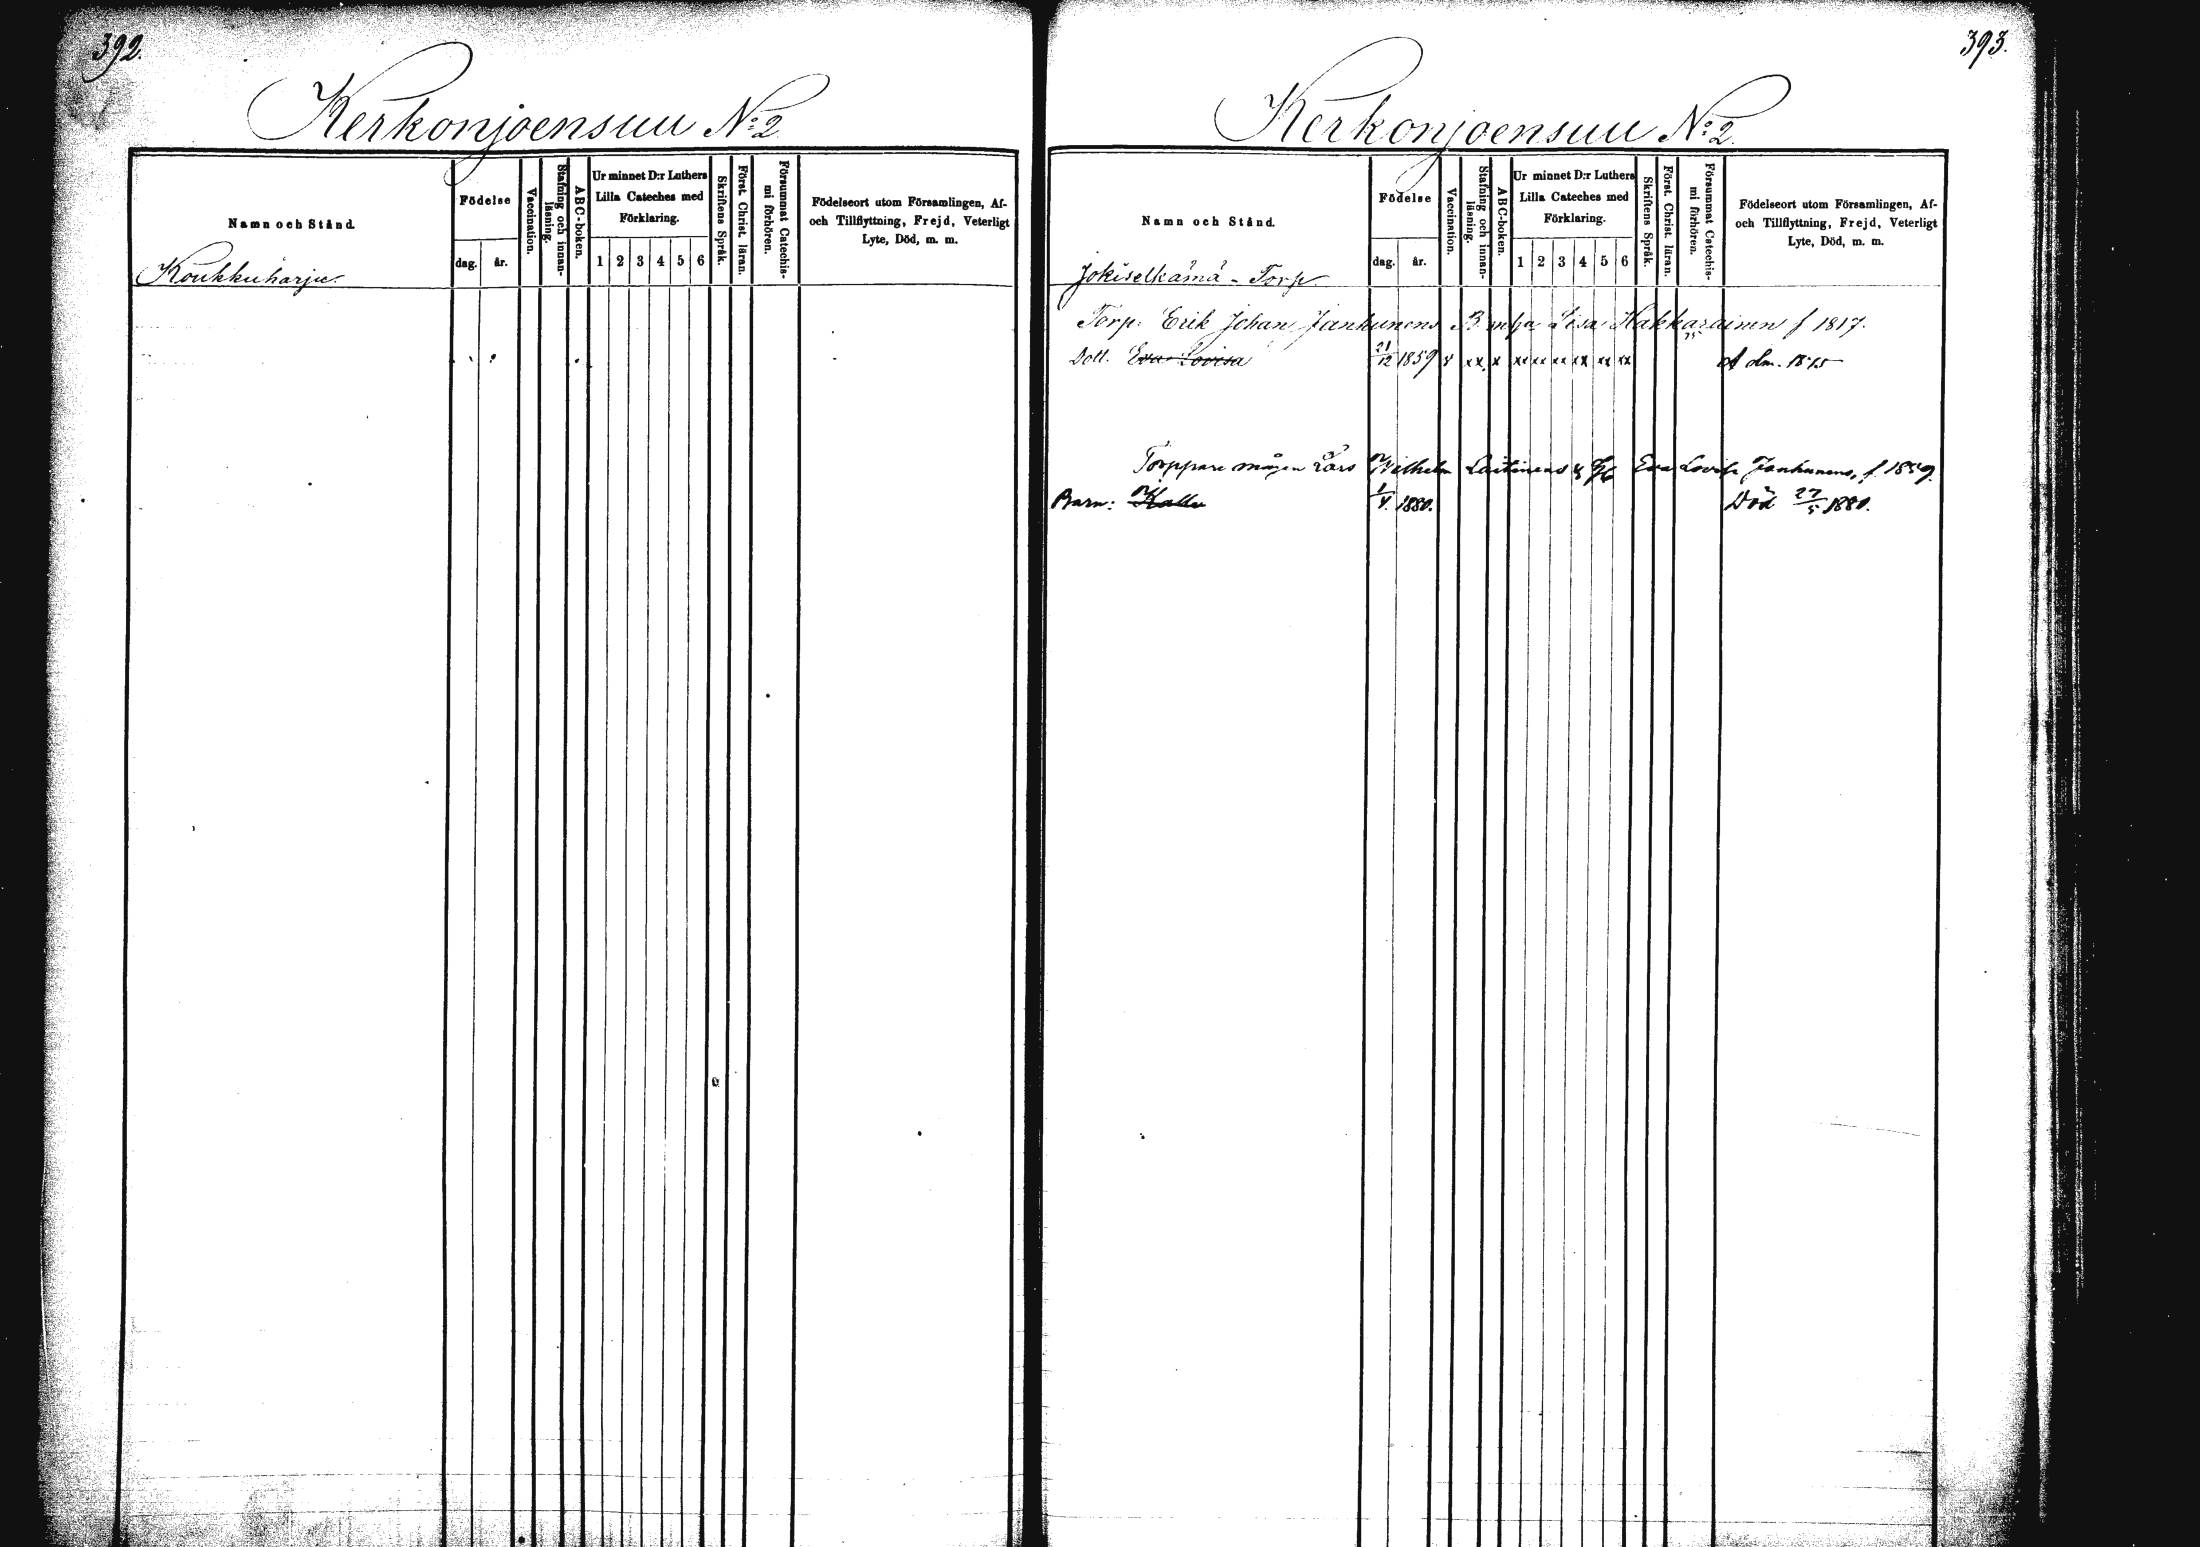 392.
Kerkonjoensuu No 2
Namn och Stånd.
Födelse
dag.
år.
Vaccination.
Stafning och innan-
läsning.
ABC-boken.
Ur minnet D:r Luthers
Lilla Cateches med
Förklaring.
1 2 3 4 5 6
Skriftens Språk.
Först. Christ. läran.
Försummat Catechis-
mi förhören.
Födelseort utom Församlingen, Af-
och Tillflyttning, Frejd, Veterligt
Lyte, Död, m. m.
Koukkuharju.
393.
Kerkonjoensuu No 2.
Namn och Stånd.
Födelse
dag.
år.
Vaccination.
Stafning och innan-
läsning.
ABC-boken.
Ur minnet D:r Luthers
Lilla Cateches med
Förklaring.
1 2 3 4 5 6
Skriftens Språk.
Först. Christ. läran.
Försummat Catechis-
mi förhören.
Födelseort utom Församlingen, Af-
och Tillflyttning, Frejd, Veterligt
Lyte, Död, m. m.
Jokiselkämä - Torp
Torp. Erik Johan Janhunens Lisa Hakkarainen f 1817.
Dott. Eva Lovisa 21/12 1859 x xx x xx xx xx xx xx xx
Torppare mågen Lars Wilhelm Laitinens Eva Lovisa Janhunens, f 1859.
Barn: Kalle 1/4. 1880. Död 27/5 1880.